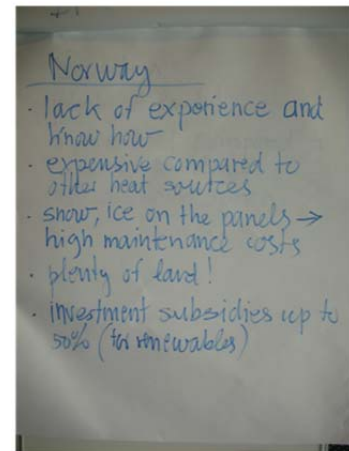 Norway
· lack of experience and
know how
· expensive compared to
other heat sources
· snow, ice on the panels →
high maintenance costs
· plenty of land!
· investment subsidies up to
50% (for renewables)